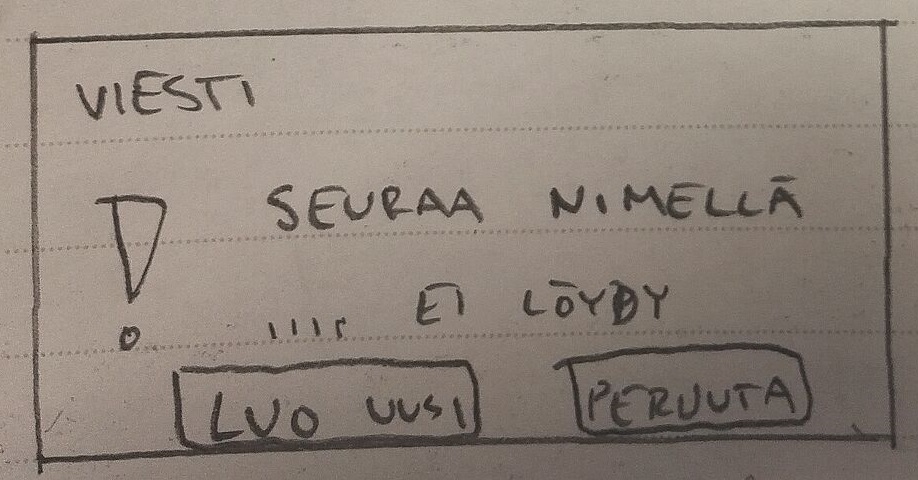 VIESTI
! SEURAA NIMELLÄ
.... EI LÖYDY
LUO UUSI PERUUTA